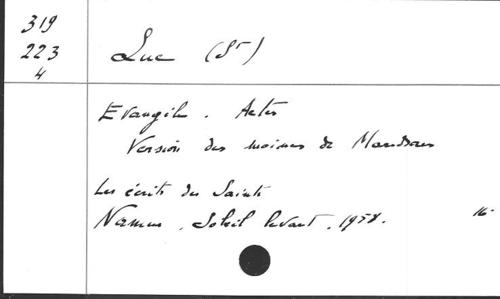 319
223
4
Luc (St)
Evangile. Actes
Version des moines de Maredsous
Les écrits des Saints
Namur, Soleil levant, 1958.
16